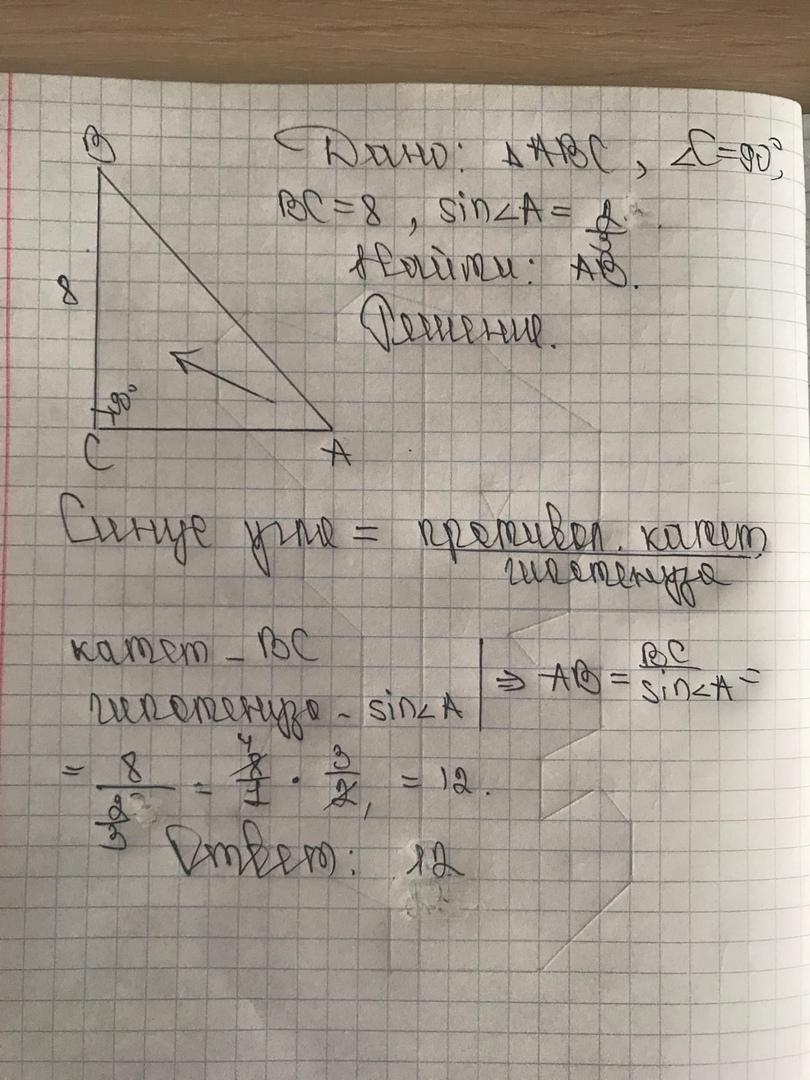 B
Дано: △ABC, ∠C=90°,
BC=8, sin∠A= 2/3.
Найти: AB.
8
Решение.
90°
C
A
Синус угла = противол. катет / гипотенуза
катет - BC
гипотенуза - sin∠A | ⇒ AB = BC / sin∠A =
= 8 / 2/3 = 8/1 4 · 3/2 1 = 12.
Ответ: 12